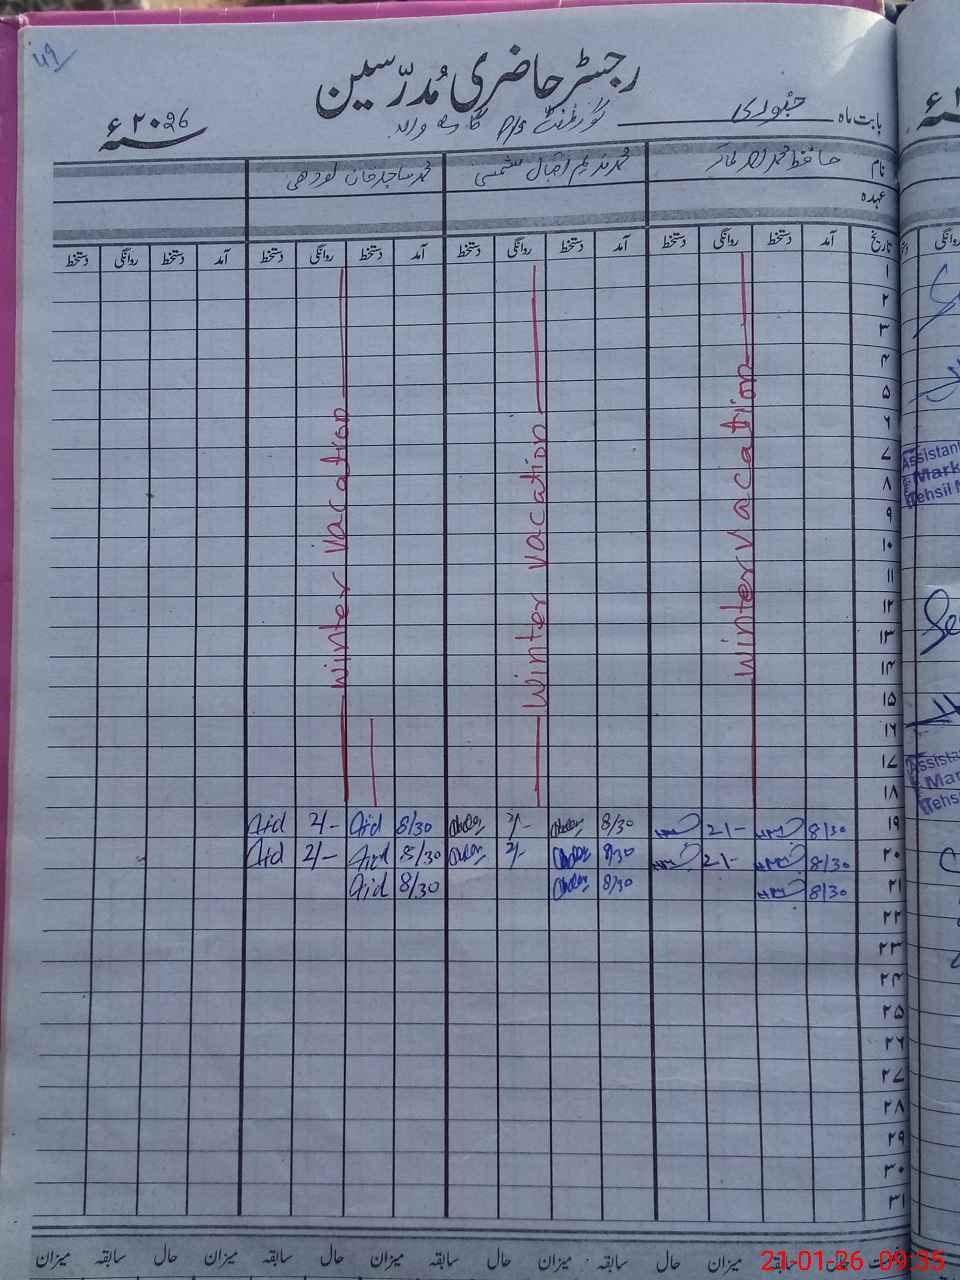 49
رجسٹر حاضری مُدرّسین
بابت ماہ جنوری گورنمنٹ P/S ۲۰26ء
نام حافظ محمد محمد ندیم اقبال شمسی محمد ساجد خان لودھی
عہدہ
تاریخ آمد دستخط روانگی دستخط آمد دستخط روانگی دستخط آمد دستخط روانگی دستخط آمد دستخط روانگی دستخط
روانگی
۱
۲
۳
۴
۵
۶
۷
۸
۹
۱۰
۱۱
۱۲
۱۳
۱۴
۱۵
۱۶
۱۷
۱۸
winter vacation
winter vacation
winter vacation
۱۹ 8/30 2/- 8/30 2/- 8/30 2/-
۲۰ 8/30 2/- 8/30 2/- 8/30 2/-
۲۱ 8/30 8/30 8/30
۲۲
۲۳
۲۴
۲۵
۲۶
۲۷
۲۸
۲۹
۳۰
۳۱
سابقہ حال میزان سابقہ حال میزان سابقہ حال میزان سابقہ حال میزان
Assistant
Mark
Tehsil
Assista
Mar
Tehs
21-01-26 09:35